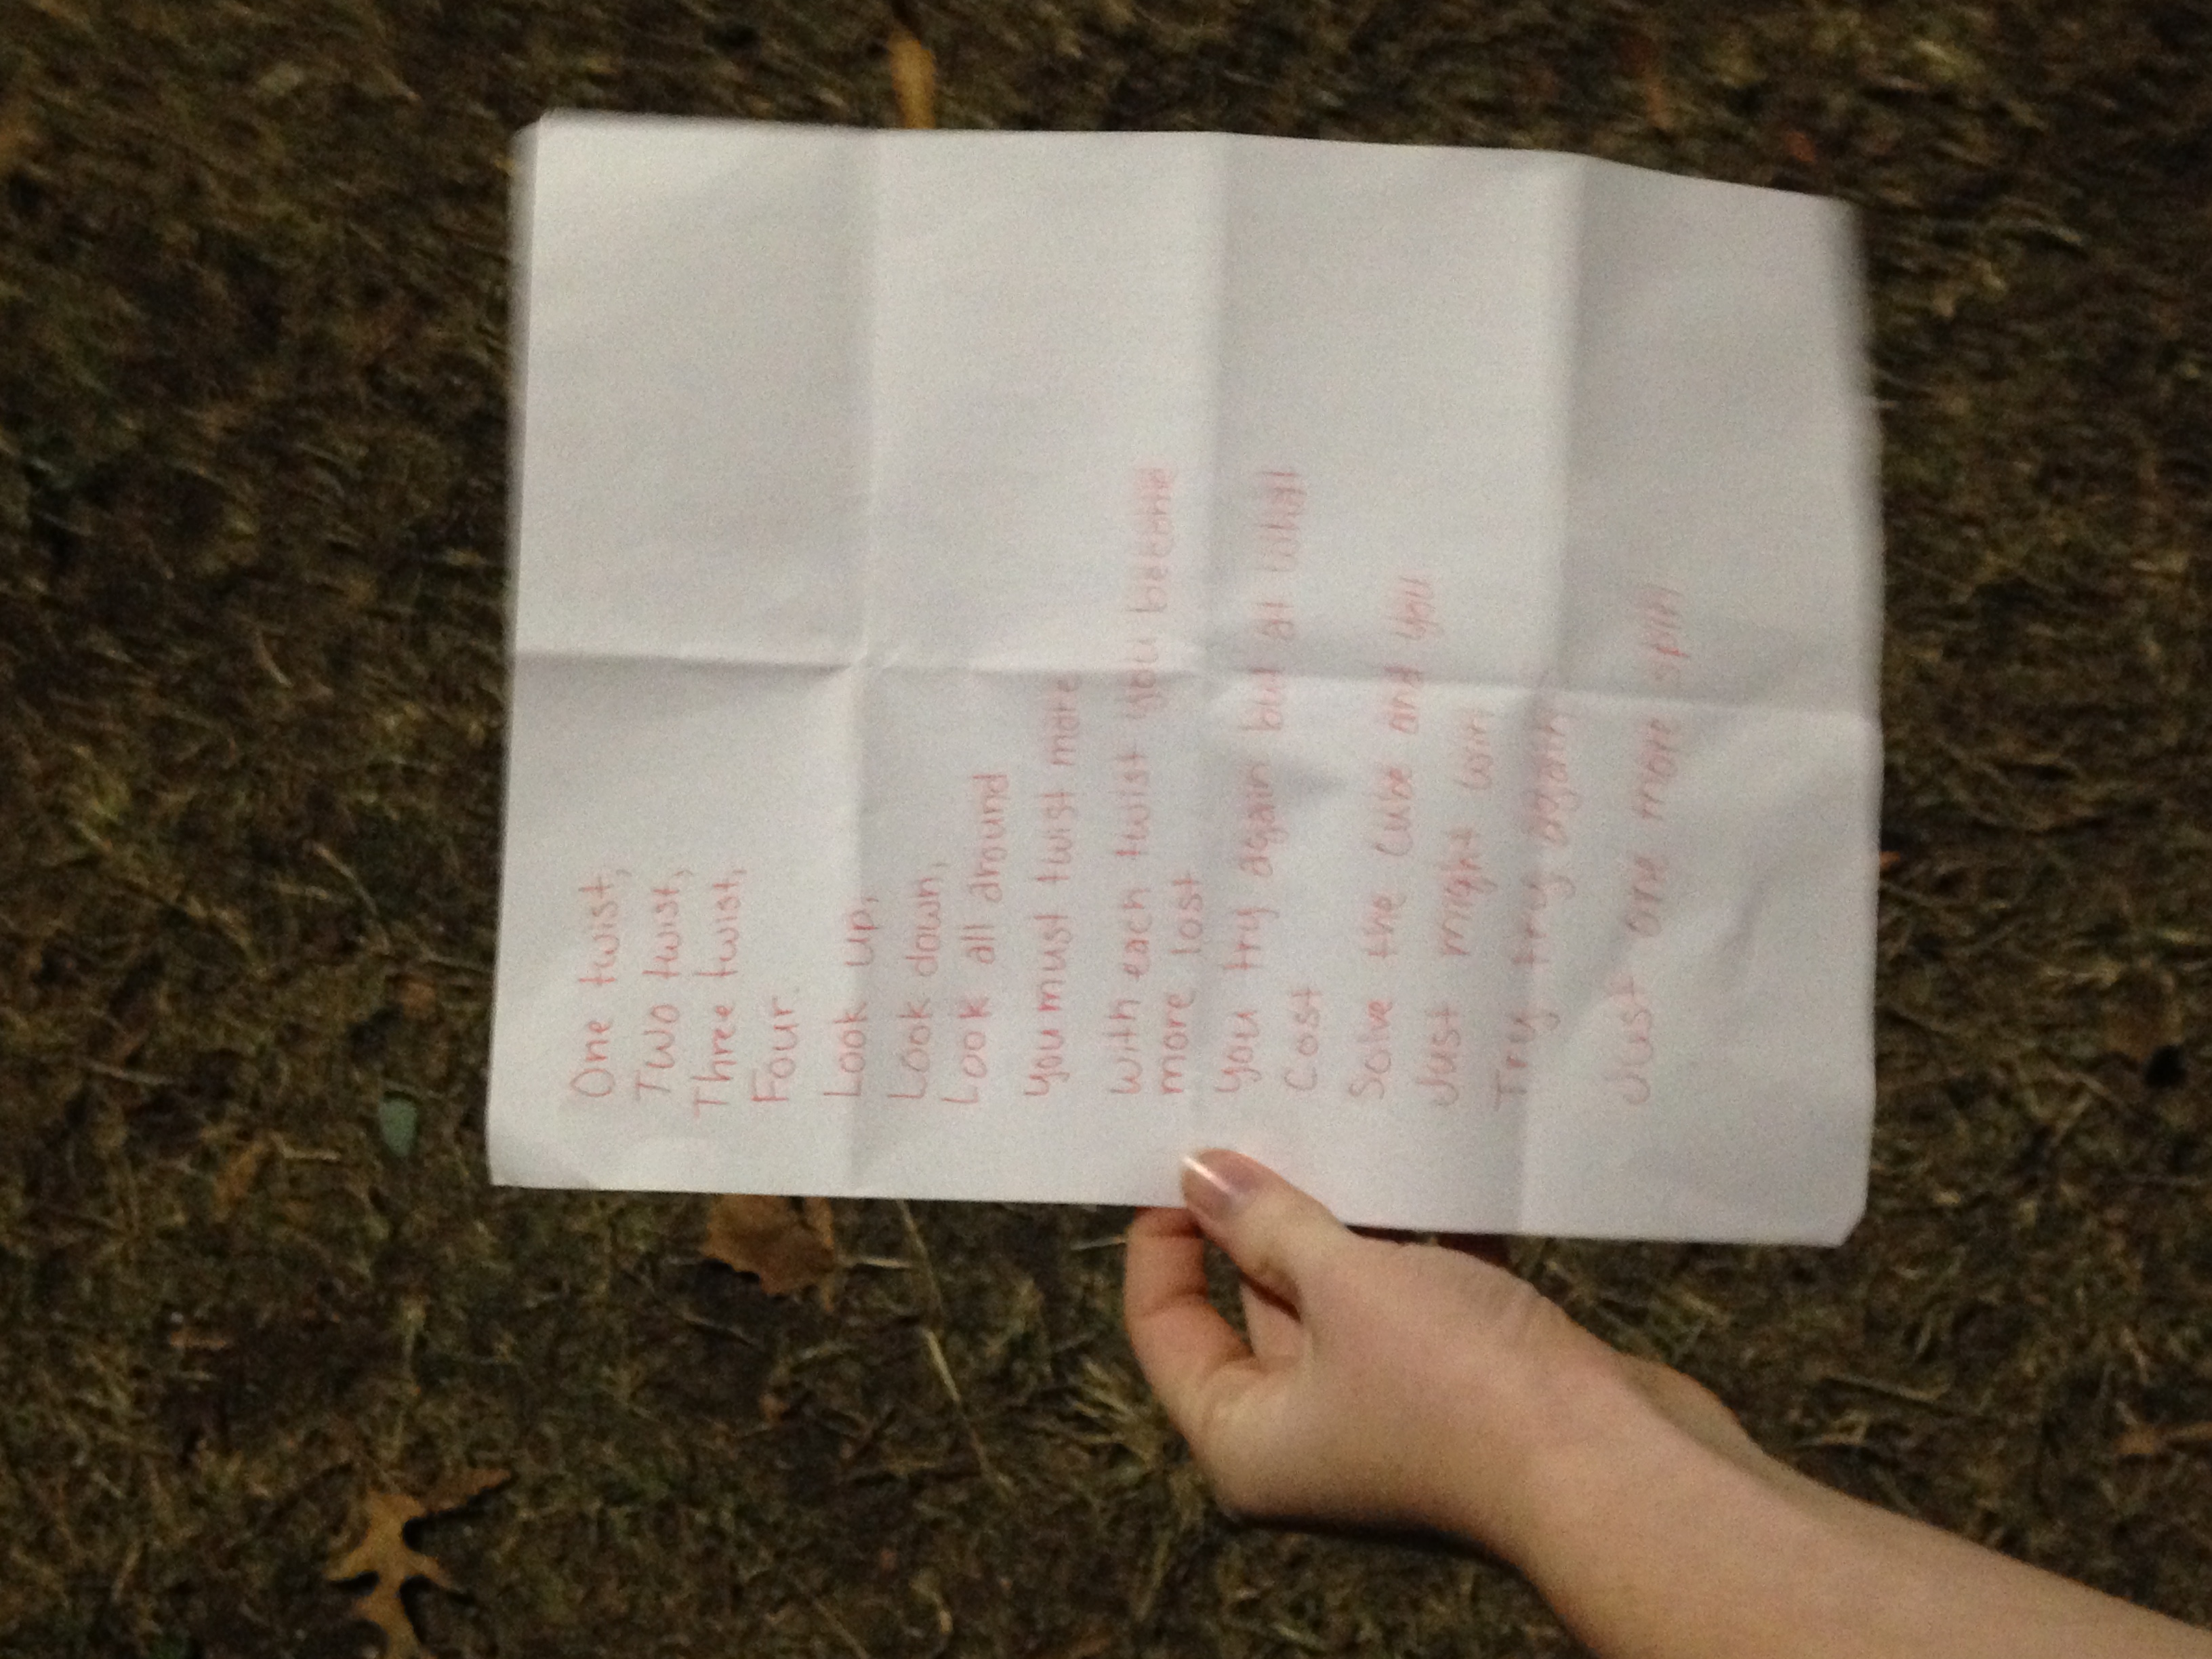 One twist,
Two twist,
Three twist,
Four.
Look up,
Look down,
Look all around
you must twist more
With each twist you become
more lost
you try again but at what
Cost
Solve the cube and you
Just might win,
Try try again,
Just one more spin